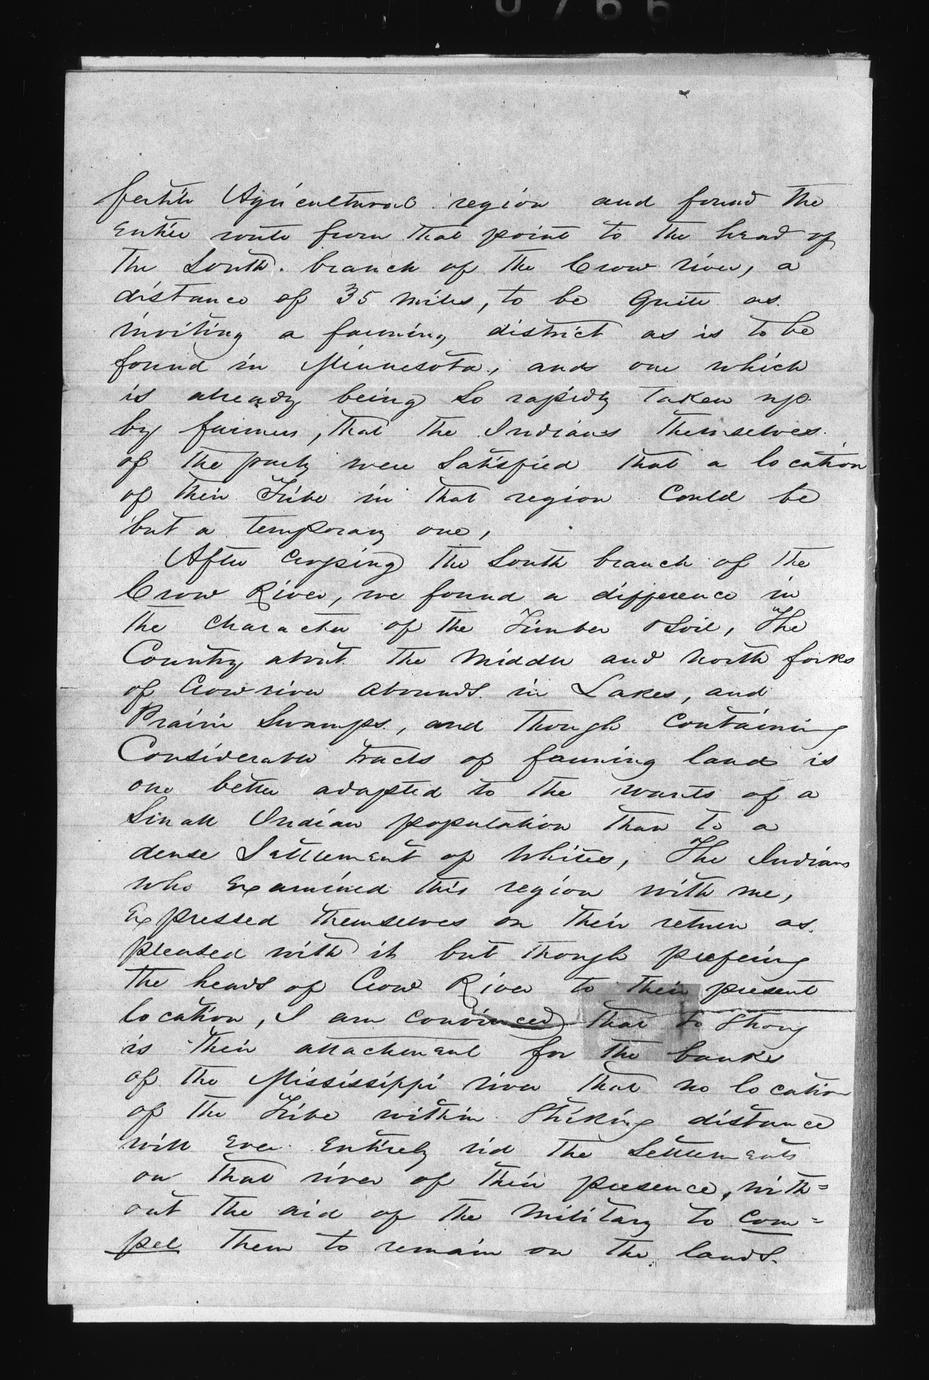 0766
fertile Agricultural region and found the
entire route from that point to the head of
the South branch of the Crow river, a
distance of 35 miles, to be quite as
inviting a farming district as is to be
found in Minnesota, and one which
is already being so rapidly taken up
by farmers, that the Indians themselves
of the party were satisfied that a location
of their Tribe in that region could be
but a temporary one,
After crossing the South branch of the
Crow River, we found a difference in
the character of the Timber & soil, The
Country about the Middle and North forks
of Crow river abounds in Lakes, and
Prairie Swamps, and though containing
Considerable tracts of farming land is
one better adapted to the wants of a
Small Indian population than to a
dense Settlement of Whites, The Indians
who examined this region with me,
expressed themselves on their return as
pleased with it but though prefering
the heads of Crow River to their present
location, I am convinced that so strong
is their attachment for the banks
of the Mississippi river that no location
of the Tribe within striking distance
will ever entirely rid the Settlements
on that river of their presence, with=
out the aid of the Military to com=
pel them to remain on the lands.